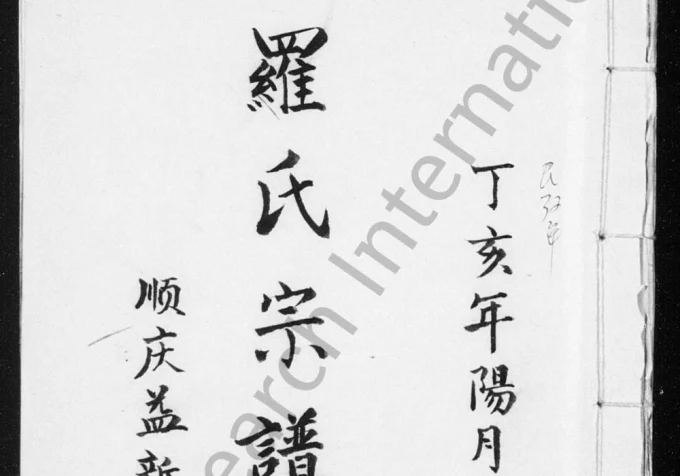 丁亥年陽月
羅氏宗譜
順庆益新
earch Internatio